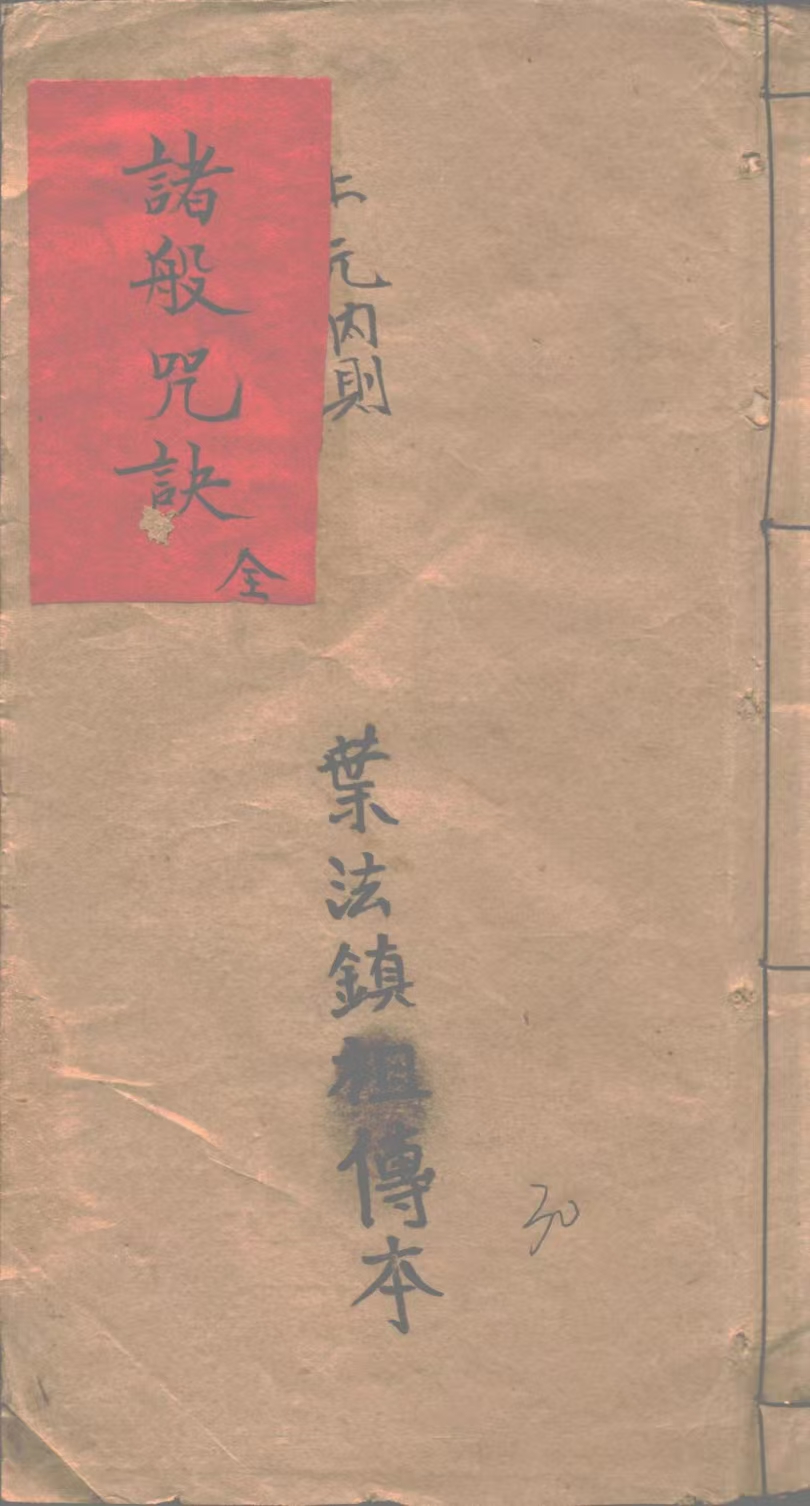 上元內則
諸般咒訣
全
葉法鎮祖傳本
30